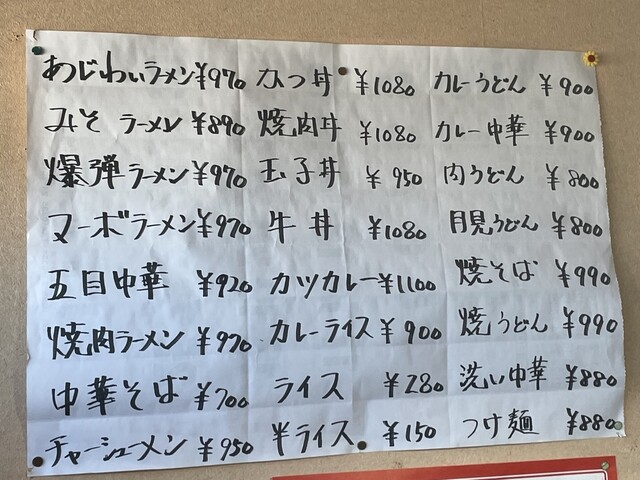 あじわいラーメン ¥970
みそ ラーメン ¥890
爆弾ラーメン ¥970
マーボラーメン ¥970
五目中華 ¥920
焼肉ラーメン ¥970
中華そば ¥700
チャーシューメン ¥950
かつ丼 ¥1080
焼肉丼 ¥1080
玉子丼 ¥950
牛丼 ¥1080
カツカレー ¥1100
カレーライス ¥900
ライス ¥280
半ライス ¥150
カレーうどん ¥900
カレー中華 ¥900
肉うどん ¥800
月見うどん ¥800
焼そば ¥990
焼うどん ¥990
洗い中華 ¥880
つけ麺 ¥880